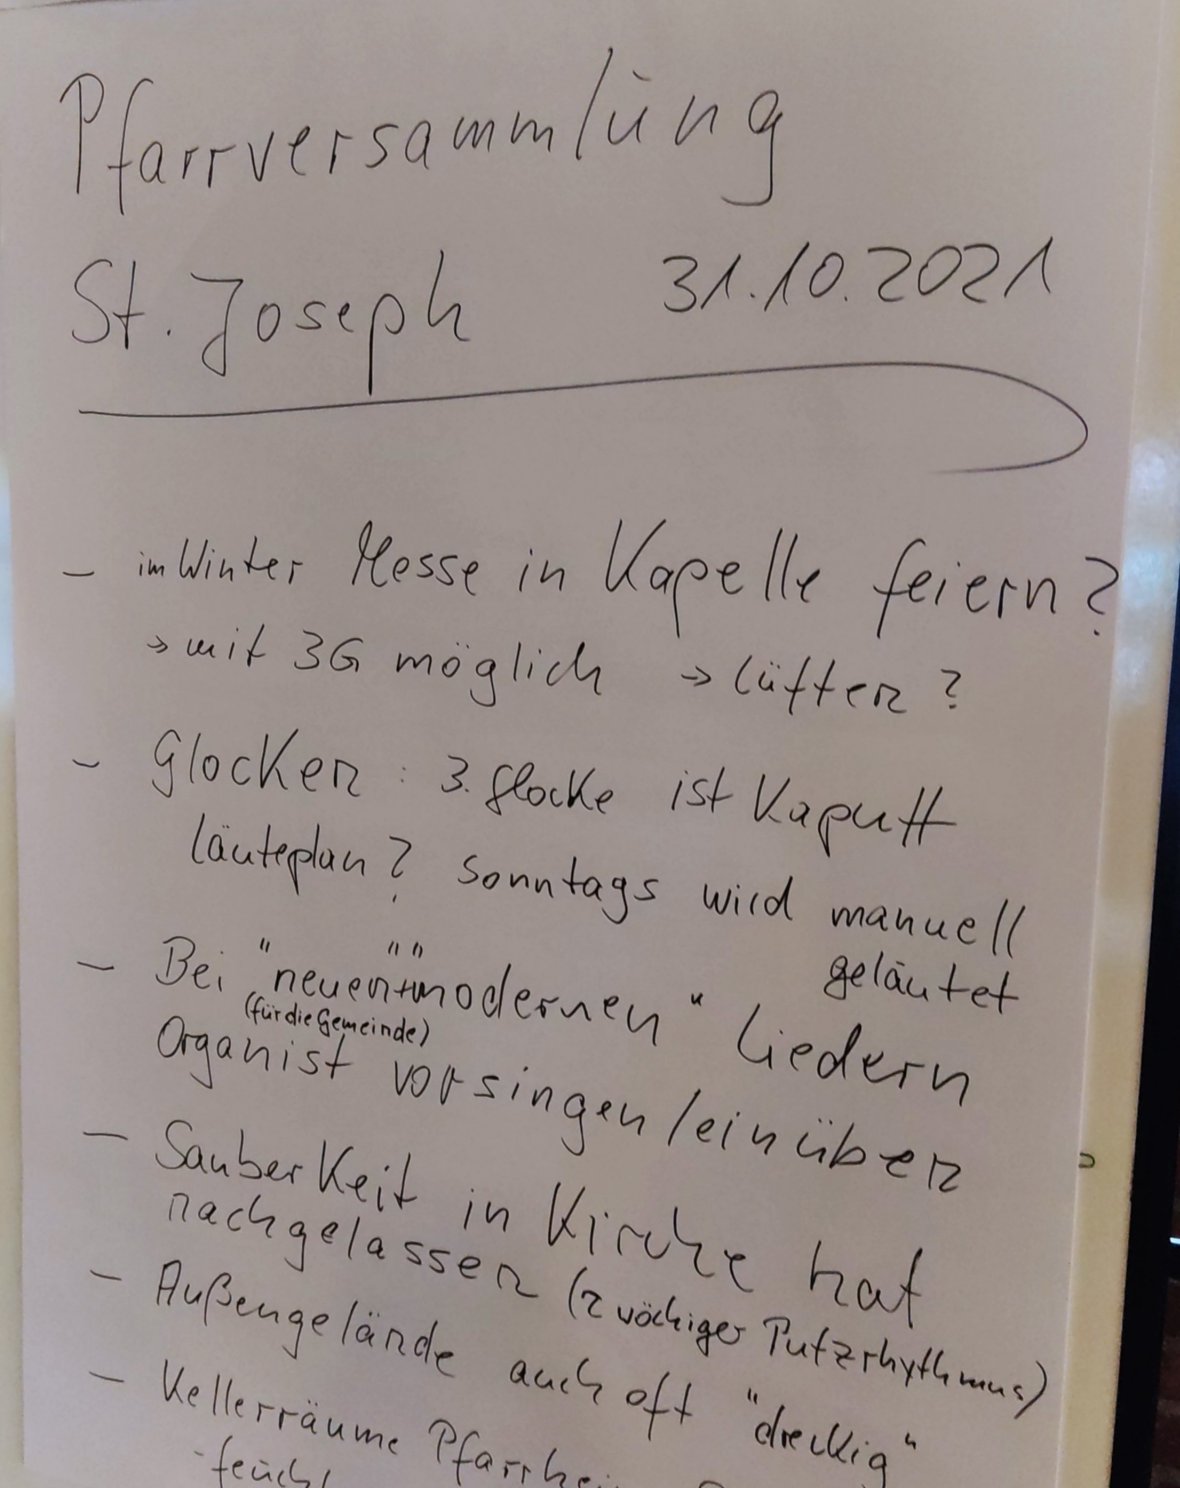 Pfarrversammlung
St. Joseph 31.10.2021
- im Winter Messe in Kapelle feiern?
→ mit 3G möglich → Lüften?
- Glocken: 3. Glocke ist kaputt
Läuteplan? Sonntags wird manuell
geläutet
- Bei "neuen"+"modernen" Liedern
(für die Gemeinde)
Organist vorsingen/einüben
- Sauberkeit in Kirche hat
nachgelassen (2 wöchiger Putzrhythmus)
- Außengelände auch oft "dreckig"
- Kellerräume